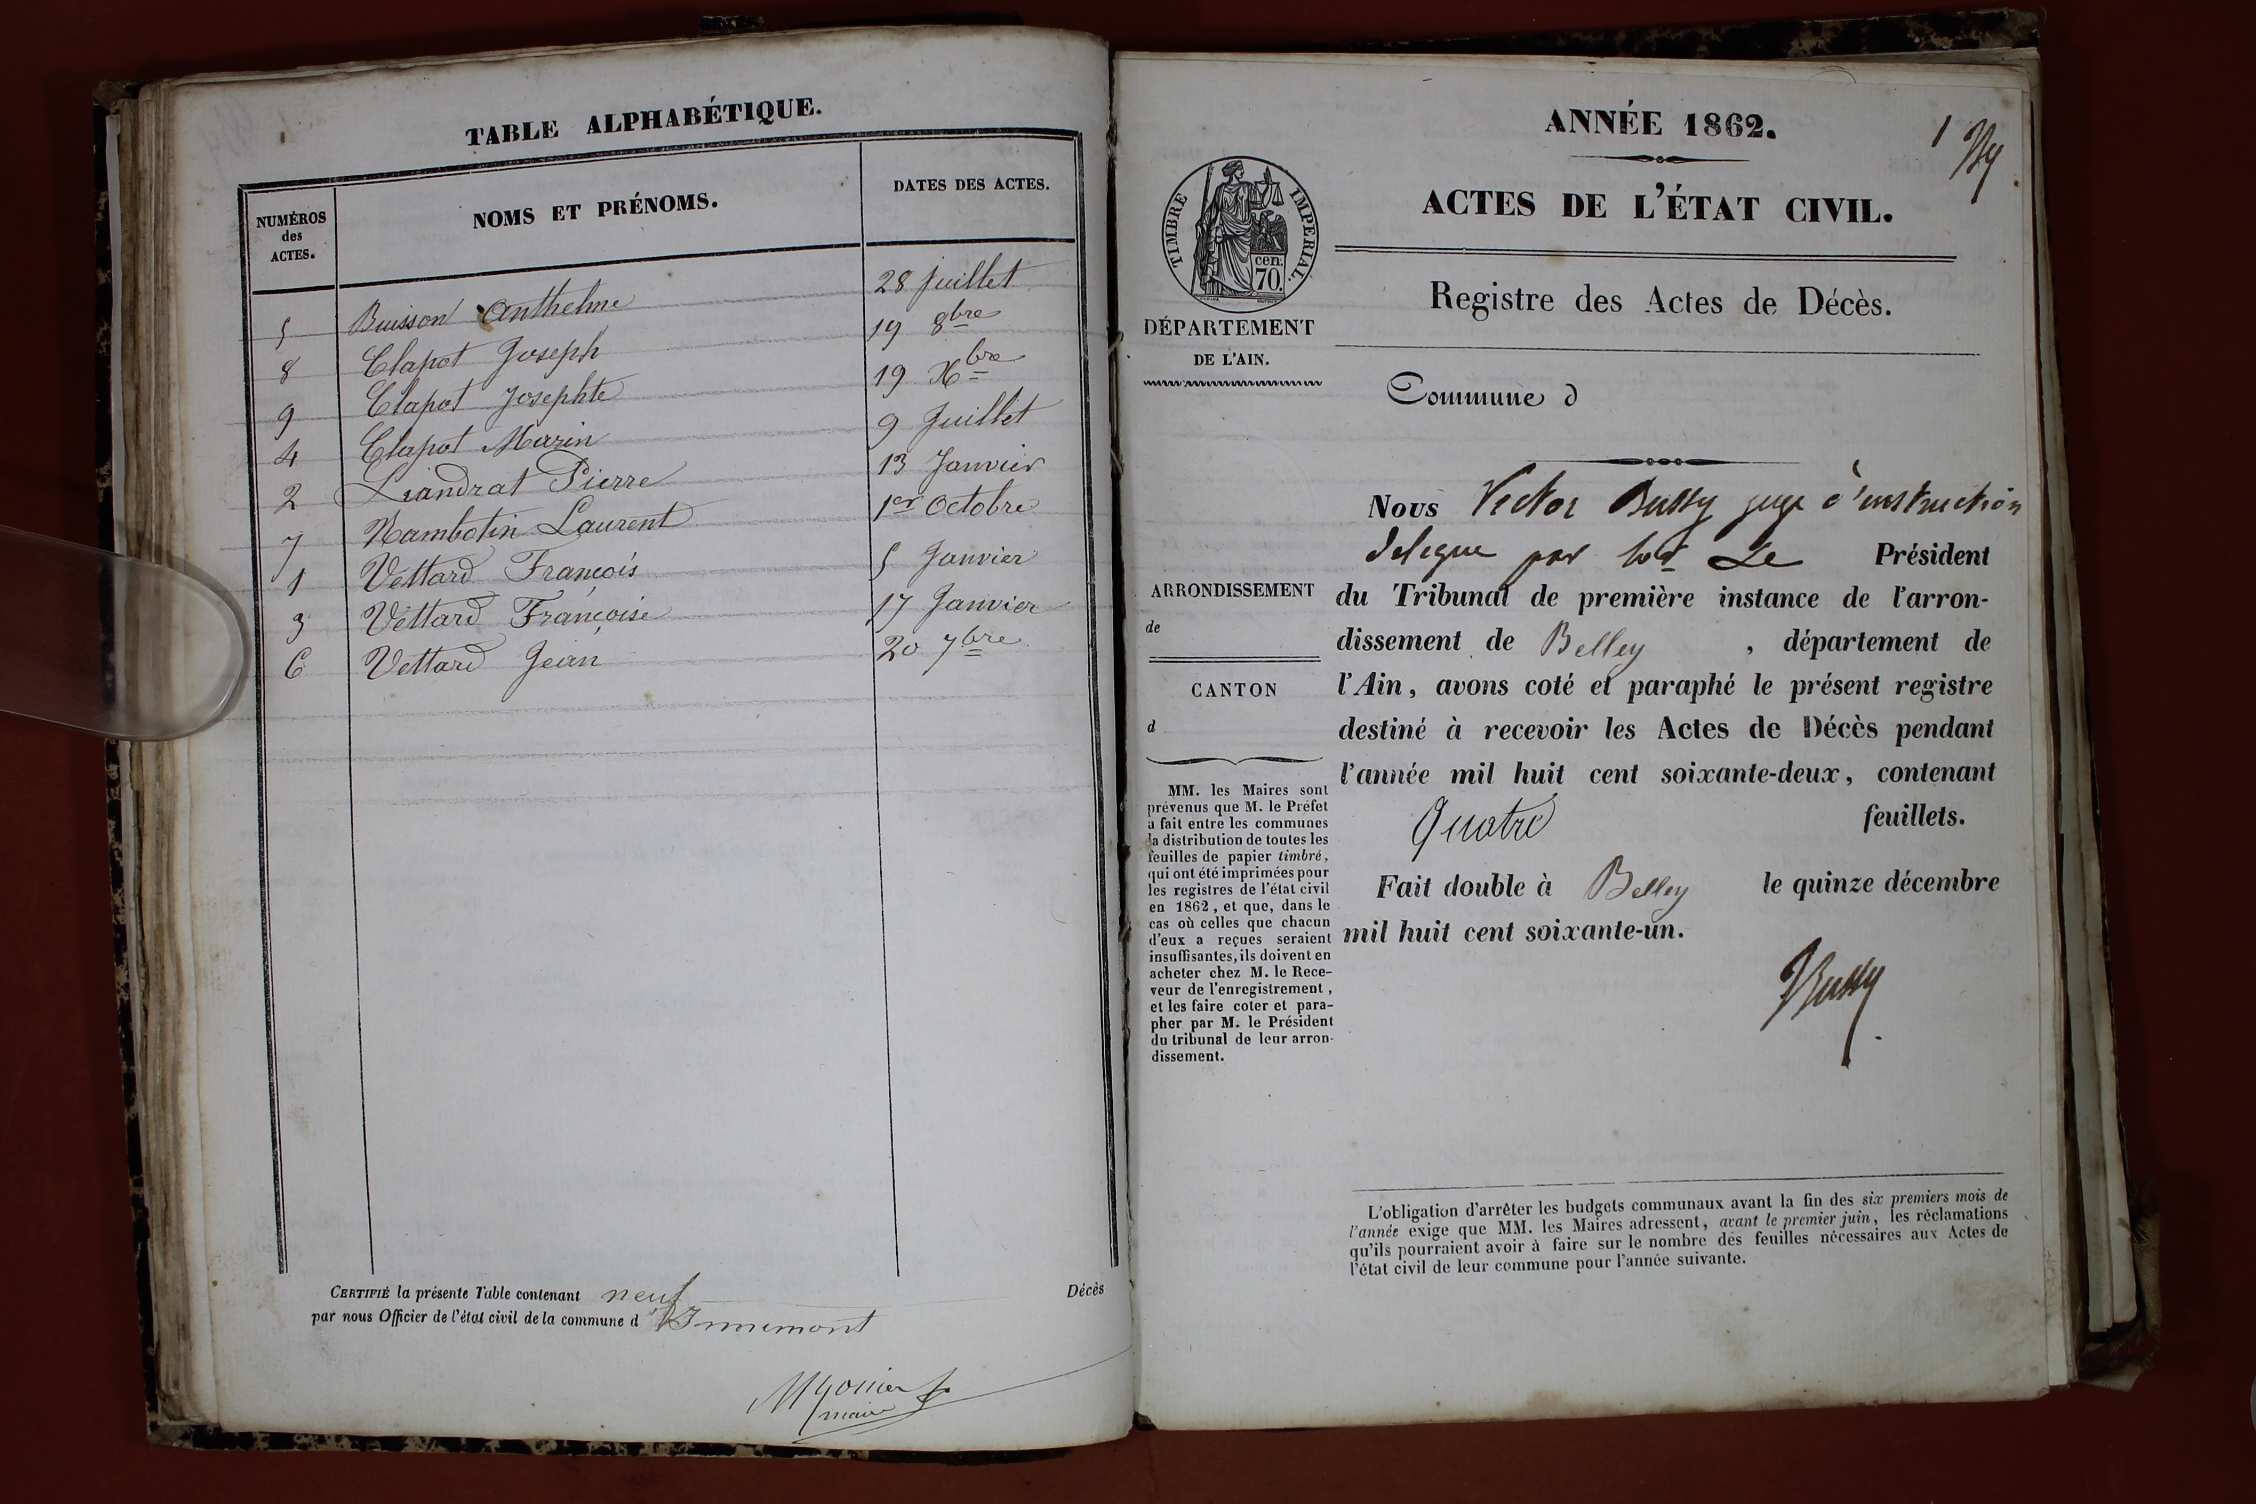 TABLE ALPHABÉTIQUE.
NUMÉROS des ACTES. NOMS ET PRÉNOMS. DATES DES ACTES.
5 Buisson Anthelme 28 juillet
8 Clapot Joseph 19 8bre
9 Clapot Josephte 19 Xbre
4 Clapot Marin 9 Juillet
2 Liandrat Pierre 13 Janvier
7 Nambotin Laurent 1er Octobre
1 Vettard François 5 Janvier
3 Vettard Françoise 17 Janvier
6 Vettard Jean 20 7bre
CERTIFIÉ la présente Table contenant neuf Décès
par nous Officier de l'état civil de la commune d'Innimont
maire
ANNÉE 1862.
1
ACTES DE L'ÉTAT CIVIL.
TIMBRE IMPÉRIAL.
cen. 70.
Registre des Actes de Décès.
DÉPARTEMENT
DE L'AIN.
Commune d
ARRONDISSEMENT
de
CANTON
d
MM. les Maires sont
prévenus que M. le Préfet
a fait entre les communes
la distribution de toutes les
feuilles de papier timbré,
qui ont été imprimées pour
les registres de l'état civil
en 1862, et que, dans le
cas où celles que chacun
d'eux a reçues seraient
insuffisantes, ils doivent en
acheter chez M. le Rece-
veur de l'enregistrement,
et les faire coter et para-
pher par M. le Président
du tribunal de leur arron-
dissement.
Nous Victor Bussy juge d'instruction
delegue par Le Président
du Tribunal de première instance de l'arron-
dissement de Belley, département de
l'Ain, avons coté et paraphé le présent registre
destiné à recevoir les Actes de Décès pendant
l'année mil huit cent soixante-deux, contenant
Quatre feuillets.
Fait double à Belley le quinze décembre
mil huit cent soixante-un.
VBussy
L'obligation d'arrêter les budgets communaux avant la fin des six premiers mois de
l'année exige que MM. les Maires adressent, avant le premier juin, les réclamations
qu'ils pourraient avoir à faire sur le nombre des feuilles nécessaires aux Actes de
l'état civil de leur commune pour l'année suivante.